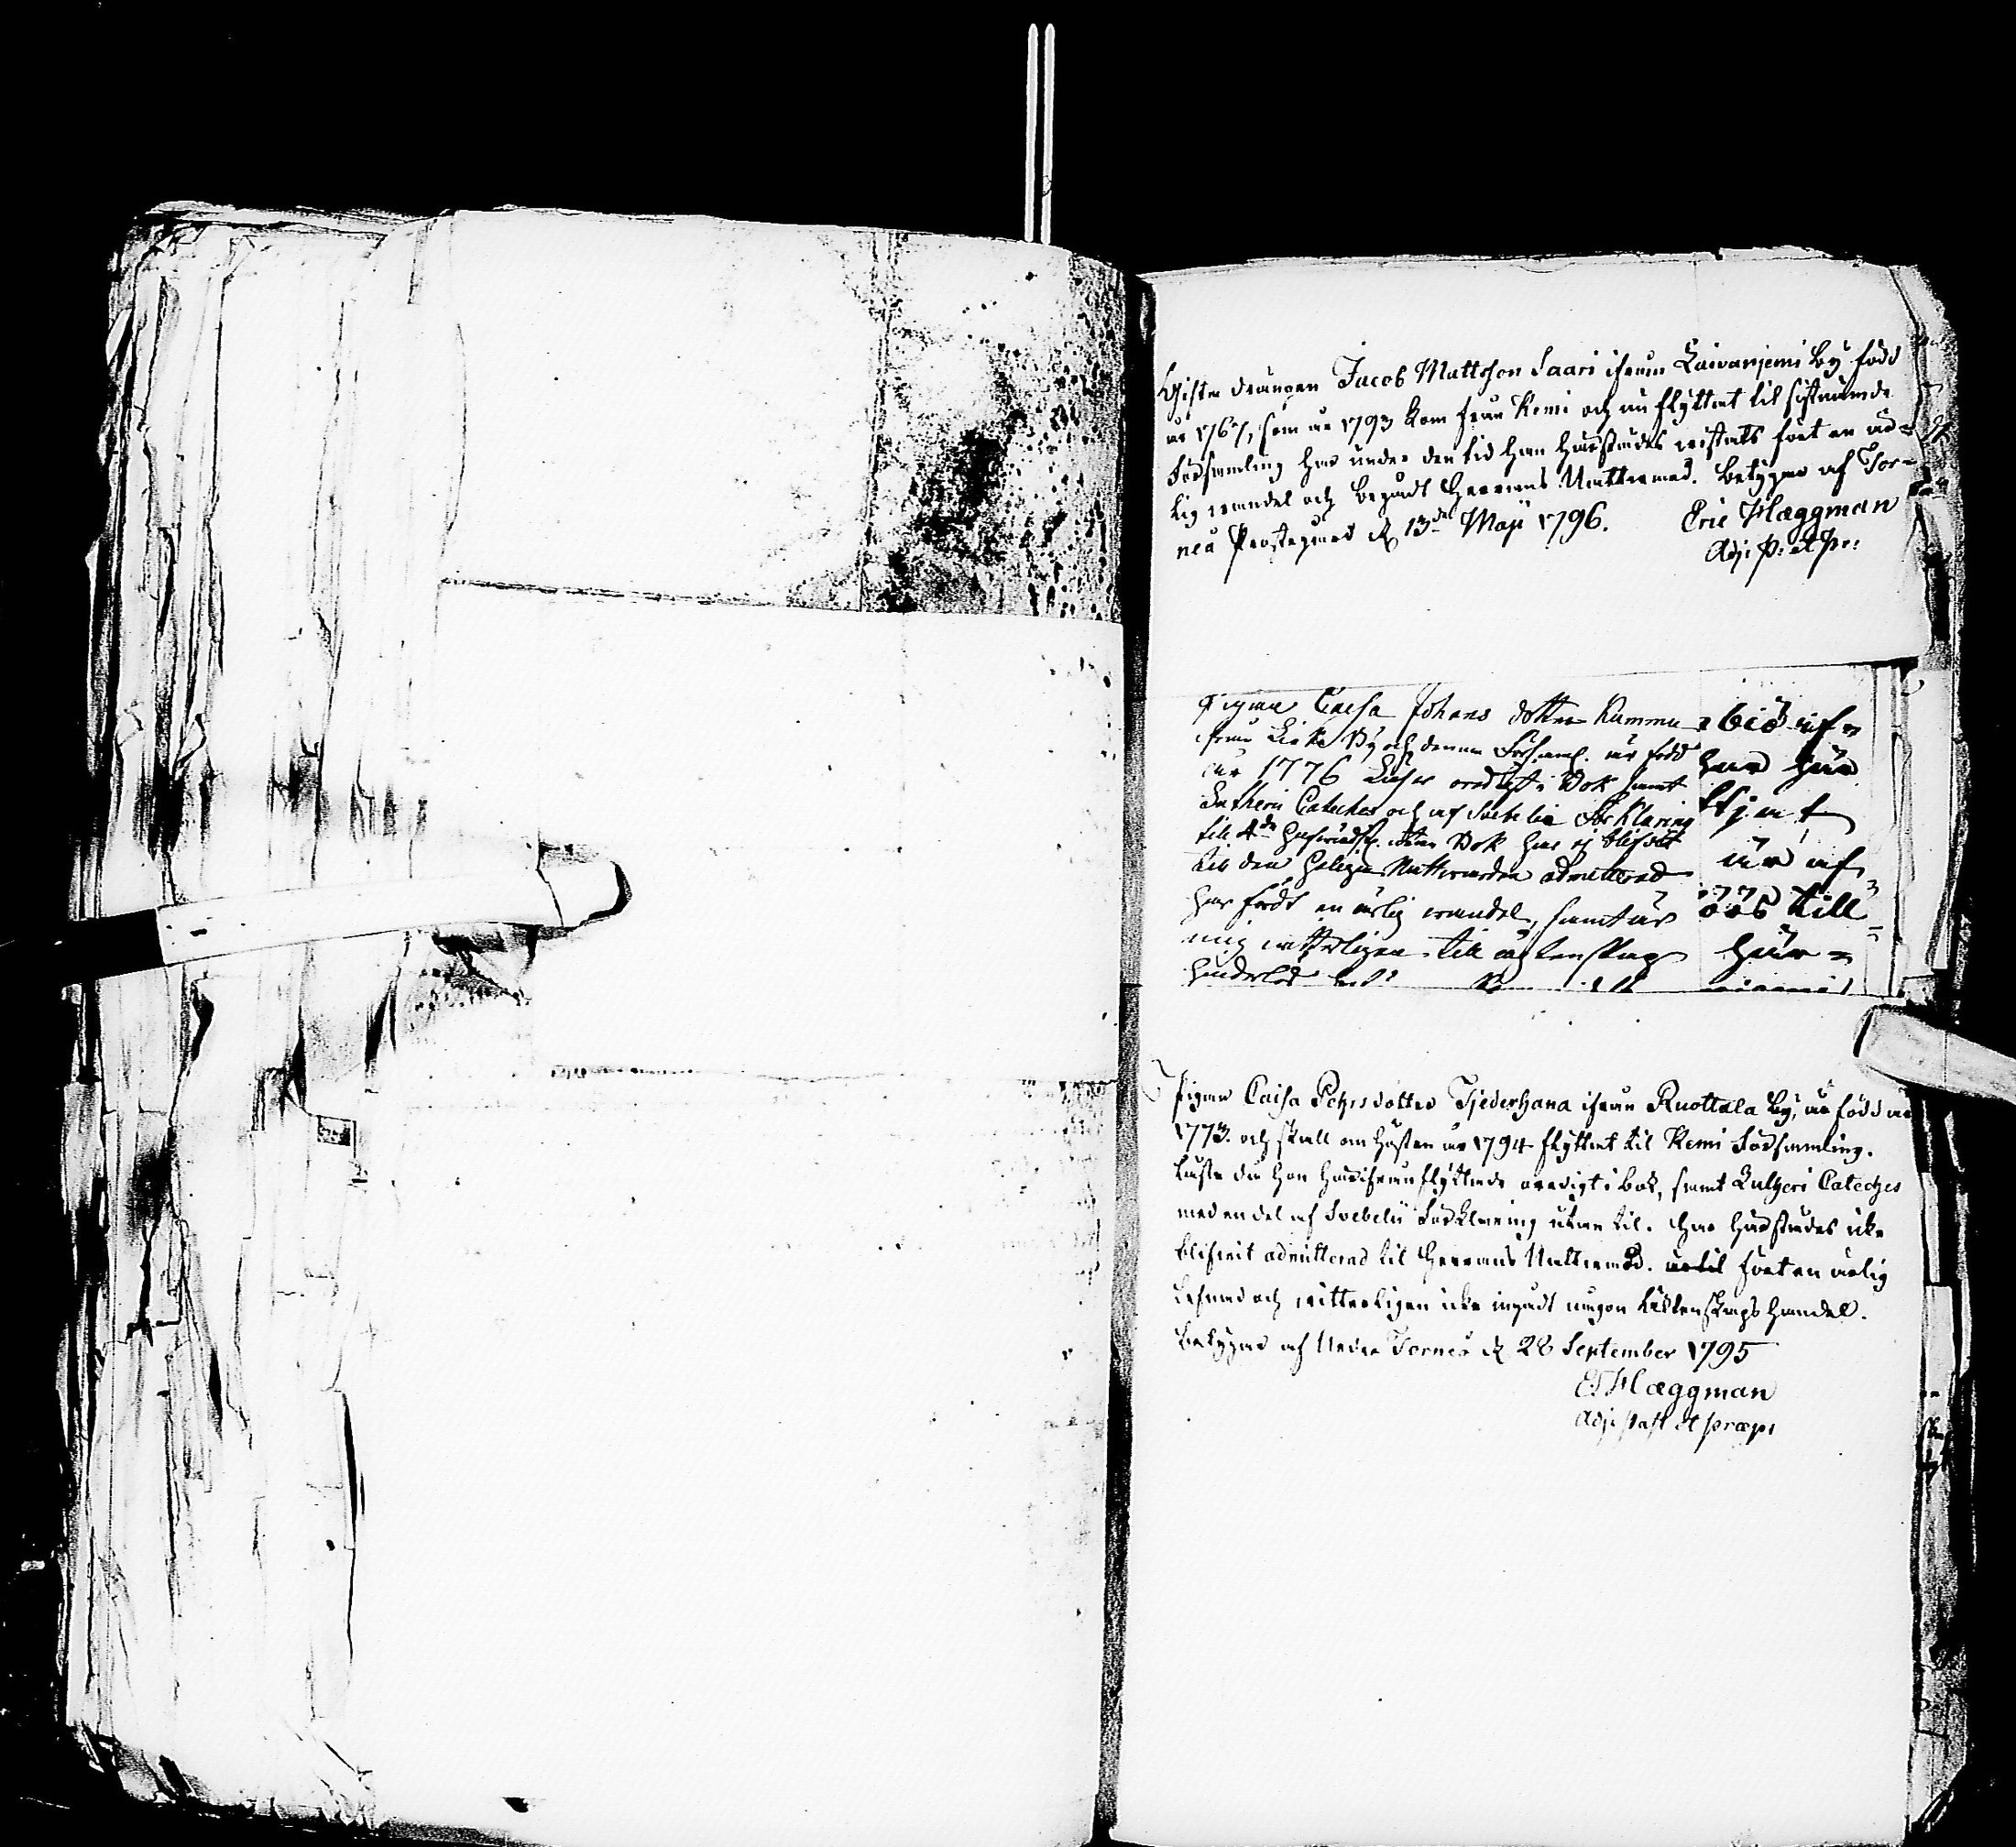 Gifta drängen Jacob Mattsson Saari ifrån Laivaniemi by född
år 1767, som år 1793 kom från Kemi och nu flyttat til sistnämde
Församling har under den tid han härstädes vistats fört en är=
lig vandel och begådt Herrans Nattward. Betygas af Tor=
neå Prostegård d 13de Maji 1796. Eric Hæggman
Adj: P: et Pr:
Pigan Caisa Johans dotter Kummu
ifrån By och denna Församl. är född
år 1776 Läser ordligt i Bok samt
Lutheri Cateches och af Svebelii Förklaring
till 4de utan Bok har ej blifvit
till den Heliga Nattvarden admitterad
har fördt en ärlig vandel, samt är
mig vetterligen till äktenskap
hinderlös
har här
är af
till
här=
Pigan Caisa Pehrsdotter Tjederhana ifrån Ruottala by, är född år
1773. och skall om hösten år 1794 flyttat til Kemi Församling.
Läste då hon härifrån flyttade oredigt i bok, samt Lutheri Cateches
med en del af Svebelii Förklaring utan til. Har härstädes icke
blifwit admitterad til Herrans Nattward. fört en ärlig
lefnad och witterligen icke ingådt någon Äktenskaps handel.
Betygas af Nedre Torneå d 28 September 1795
E. Hæggman
Adj: Past et præp: